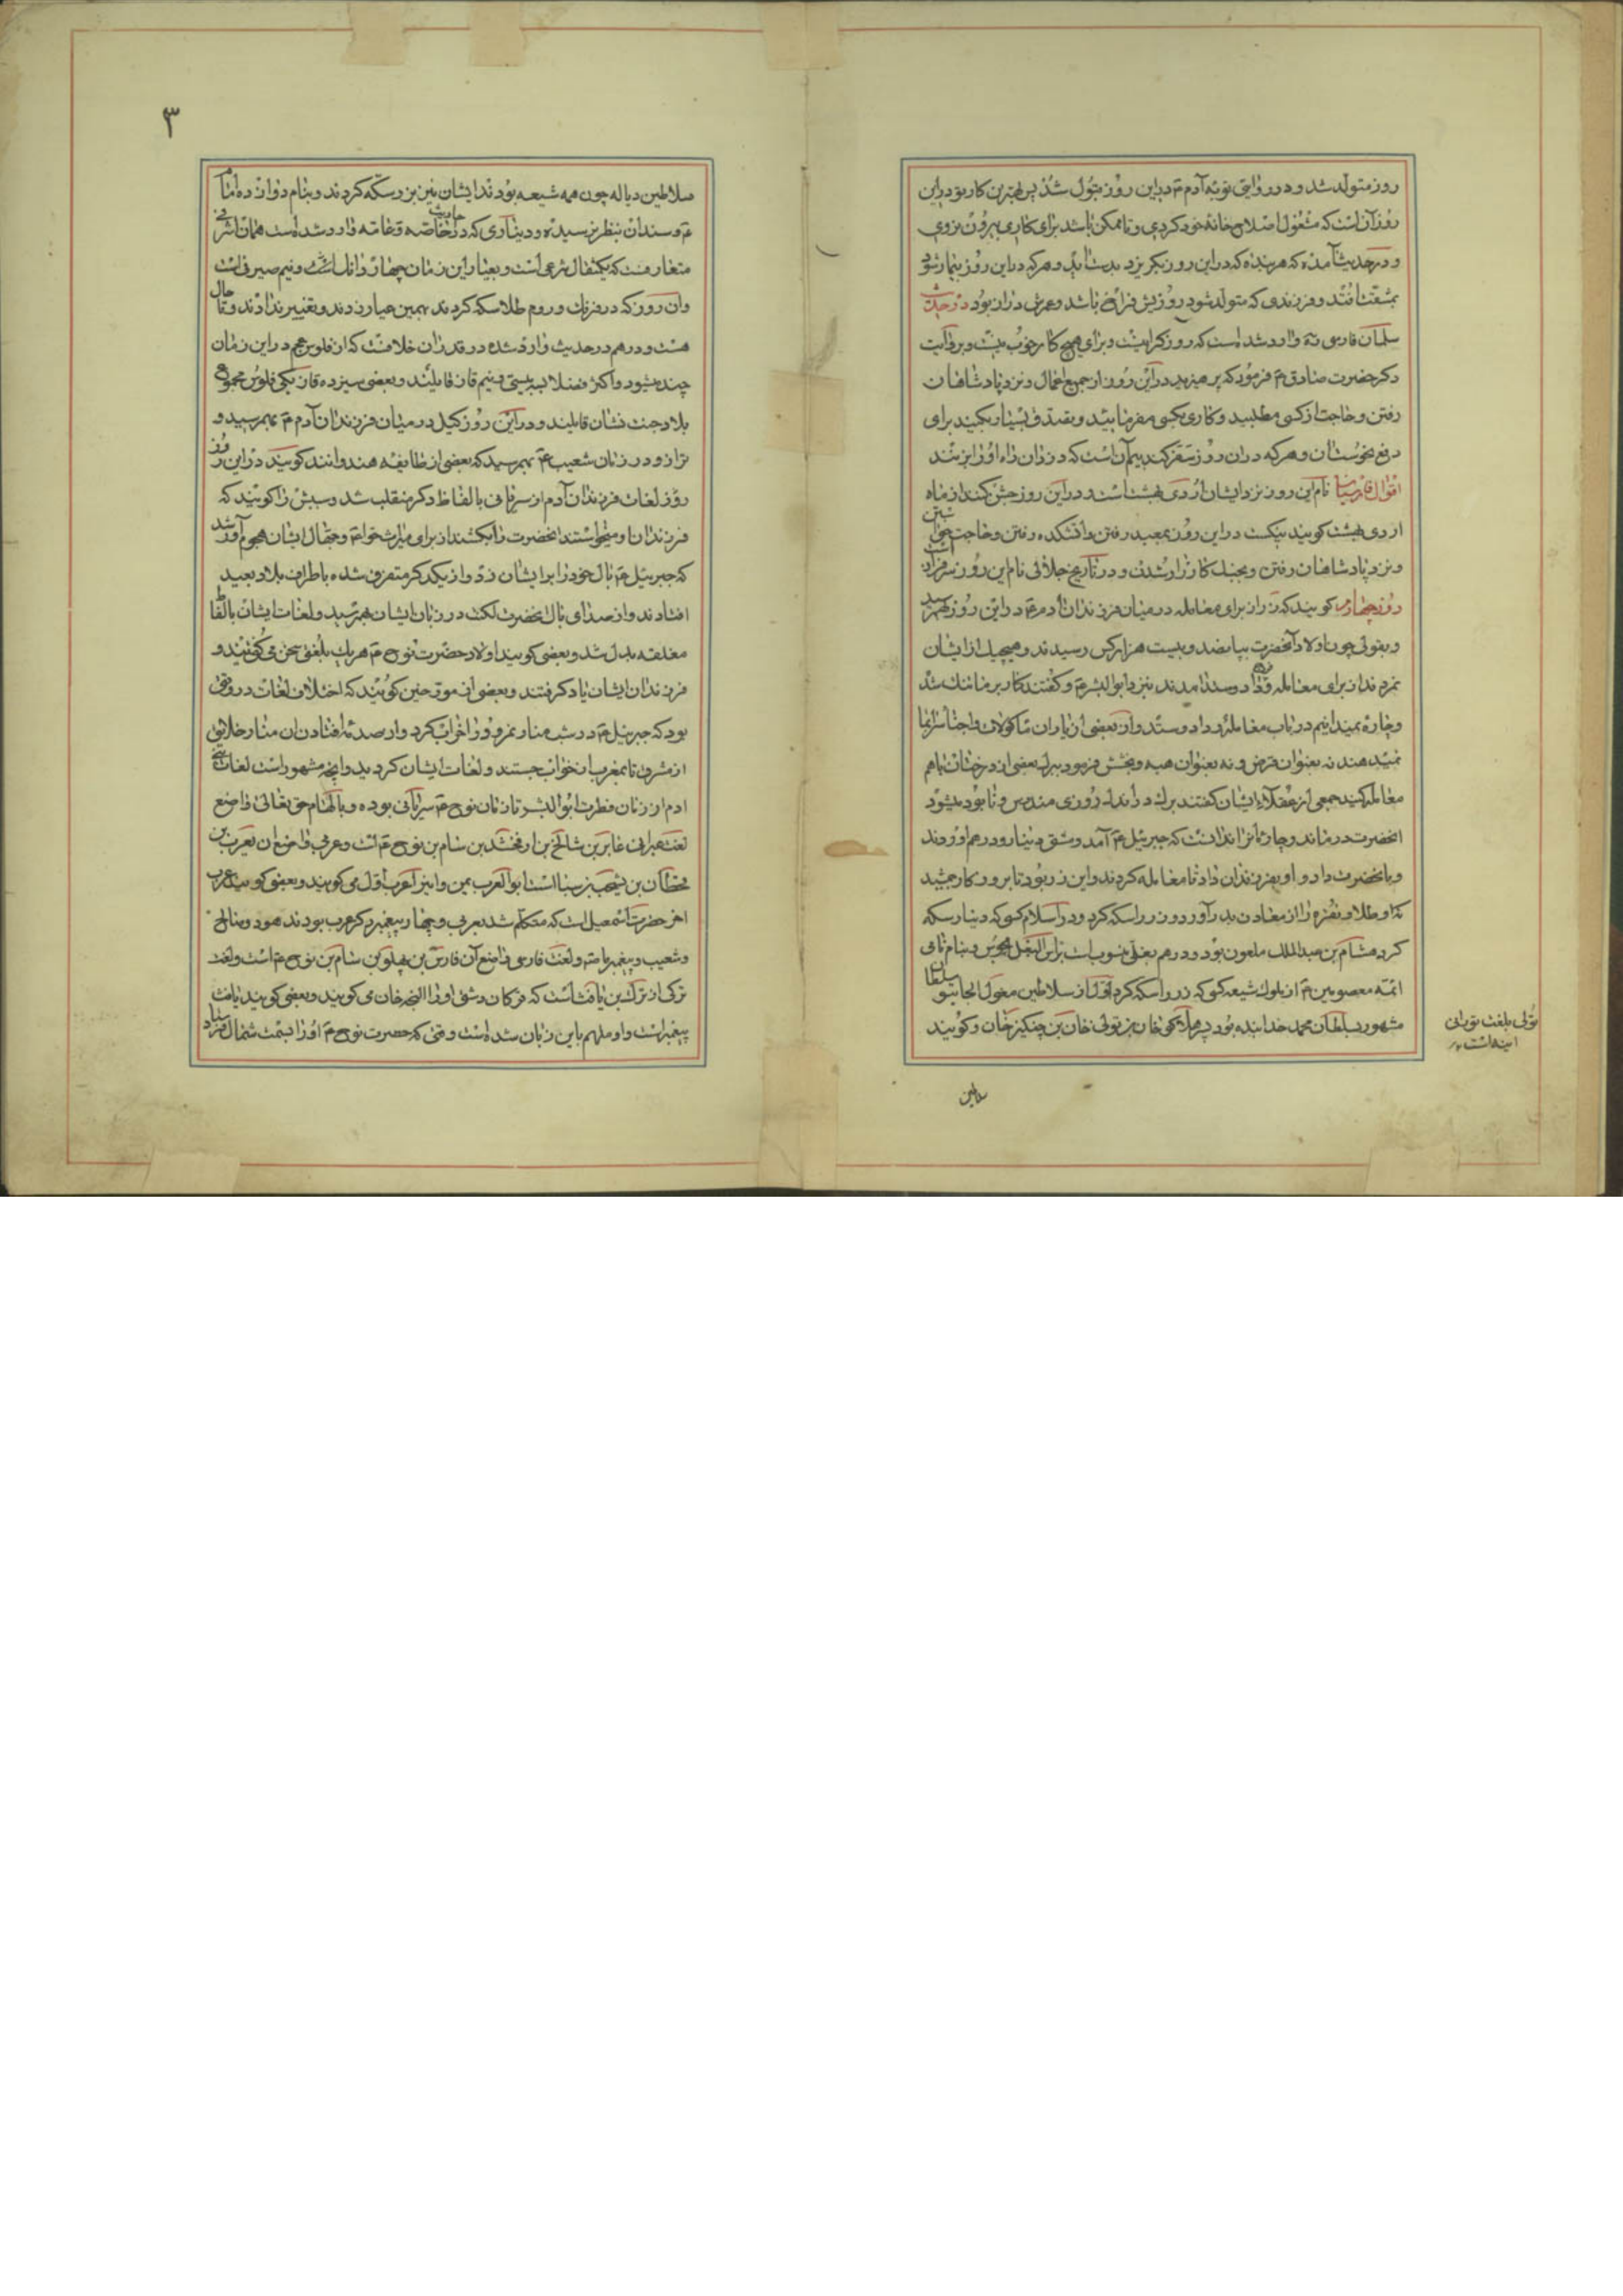 روز متولد شد و در روایتی توبه آدم ع در این روز قبول شد پس بهترین کار تو در این
روز آن است که مشغول اصلاح خانه خود کردی و تا ممکن باشد برای کاری بیرون نروی
و در حدیث آمده که هر بنده که در این روز بگریزد بدست آید و هر که در این روز بیمار شود
بمشقت افتد و فرزندی که متولد شود روزیش فراخ باشد و عمرش دراز بود در حدیث
سلمان فارسی ره وارد شده است که روز گرانیست و برای هیچ کار خوب نیست و بروایت
دکر حضرت صادق ع فرمود که پرهیزید در این روز از جمیع اعمال و نزد پادشاهان
رفتن و حاجت از کسی مطلبید و کاری بکسی مفرمایید و تصدق بسیار بکنید برای
دفع نحوست آن و هر که در آن روز سفر کند بیم آن است که دزدان راه او را بزنند
اقوال فارسیان نام این روز نزد ایشان اردی بهشت است و در این روز جشن کنند از ماه
اردی بهشت کویند نیکست در این روز بمعبد رفتن و آتشکده رفتن و حاجت خواستن
و نزد پادشاهان رفتن و بجنک کارزار شدن و در تاریخ جلالی نام این روز سرفراز است
روز چهارم کویند که زر از برای معامله در میان فرزندان آدم ع در این روز بهم رسید
و بقولی چون اولاد آنحضرت بپانصد و بیست هزار کس رسیدند و هیچیک از ایشان
نمردند از برای معامله و داد و ستد آمدند بنزد ابوالبشر ع و کفتند کار بر ما تنک شد
و چاره نمیدانیم در باب معامله و داد و ستد و آن بعضی از یاران ماکولات و اجناس را بما
نمیدهند نه بعنوان قرض و نه بعنوان هبه و بخشش فرمود ببرک بعضی از درختان با هم
معامله کنید جمعی از عقلاء ایشان کفتند برک در اندک روزی مندرس و نابود میشود
آنحضرت درماند و چاره آنرا ندانست که جبرئیل ع آمد و مشتی دینار و درهم آورد
و بآنحضرت داد و او بفرزندان داد تا معامله کردند و این زر بود تا بروزکار جمشید
که او طلا و نقره را از معادن بدر آورد و زر را سکه کرد و در اسلام کسی که دینار سکه
کرد هشام بن عبدالملک ملعون بود و درهم بغلی منسوب است براس البغل مجوس و بنام نامی
ائمه معصومین ع از ملوک شیعه کسی که زر را سکه کرد اول از سلاطین مغول الجایتو سلطان
مشهور بسلطان محمد خدابنده بود پسر هلاکوی خان بن تولی خان بن چنکیز خان و کویند
تولی بلغت تورانی
آینه است
سلاطین
۳
سلاطین دیاله چون همه شیعه بودند ایشان نیز بر زر سکه کردند و بنام دوازده امام
ع و سند آن بنظر نرسیده و دیناری که در احادیث خاصه و عامه وارد شده است همان اشرفی
متعارفست که یکمثقال شرعی است و بعیار این زمان چهار دانک است و نیم صیرفی است
و آن روز که در فرنک و روم طلا سکه کردند بهمین عیار زدند و تغییر ندادند و تا حال
هست و درهم در حدیث وارد شده در قدر آن خلافست که از فلوس عجم در این زمان
چند میشود و اکثر فضلا به بیستی و نیم قاز قایلند و بعضی سیزده قاز بکی فلوس مجموع
بلاد جنت نشان قایلند و در این روز کیل در میان فرزندان آدم ع بهم رسید و
ترازو در زمان شعیب ع بهم رسید که بعضی از طایفه هندوانند کویند در این روز
روز لغات فرزندان آدم از سریانی بالفاظ دکر منقلب شد و سببش را کویند که
فرزندان او میخواستند آنحضرت را بکشند از برای میراث حوا ع و جهال ایشان هجوم آور شد
که جبرئیل ع بال خود را بر ایشان زد و از یکدکر متفرق شده باطراف بلاد بعید
افتادند و از صدای بال آنحضرت لکنت در زبان ایشان بهم رسید و لغات ایشان بالفاظ
مختلفه بدل شد و بعضی کویند اولاد حضرت نوح ع هر یک بلغتی سخن می کفتند و
فرزندان ایشان یاد کرفتند و بعضی از مورخین کویند که اختلاف لغات در وقتی
بود که جبرئیل ع در شب منار نمرود را خراب کرد و از صدمه افتادن آن منار خلایق
از مشرق تا بمغرب از خواب جستند و لغات ایشان کردید و آنچه مشهور است لغات بنی
آدم از زمان فطرت ابوالبشر تا زمان نوح ع سریانی بوده و بالهام حق تعالی واضع
لغت عبرانی عابر بن شالخ بن ارفخشد بن سام بن نوح ع است و عربی واضع آن یعرب بن
قحطان بن یشجب بن سبا است ابوالعرب یمن و این را عرب اول می کویند و بعضی کویند عرب
آخر حضرت اسمعیل است که متکلم شد بعربی و چهار پیغمبر دکر عرب بودند هود و صالح
و شعیب و پیغمبر ما ص و لغت فارسی واضع آن فارس بن پهلو بن سام بن نوح ع است و لغت
ترکی از ترک بن یافث است که ترکان دشتی او را النجه خان می کویند و بعضی کویند یافث
پیغمبر است و او ملهم باین زبان شده است وقتی که حضرت نوح ع او را بسمت شمال فرستاد